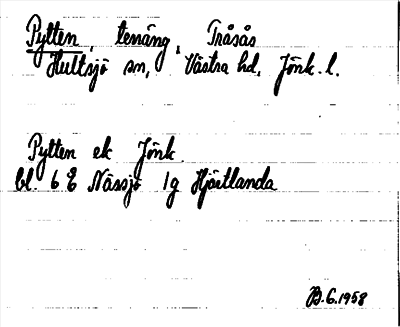 Pytten, terräng, Tråsås
Hultsjö sn, Västra hd, Jönk. l.
Pytten ek Jönk.
bl. 6 E Nässjö 1g Hjärtlanda
B.G. 1958